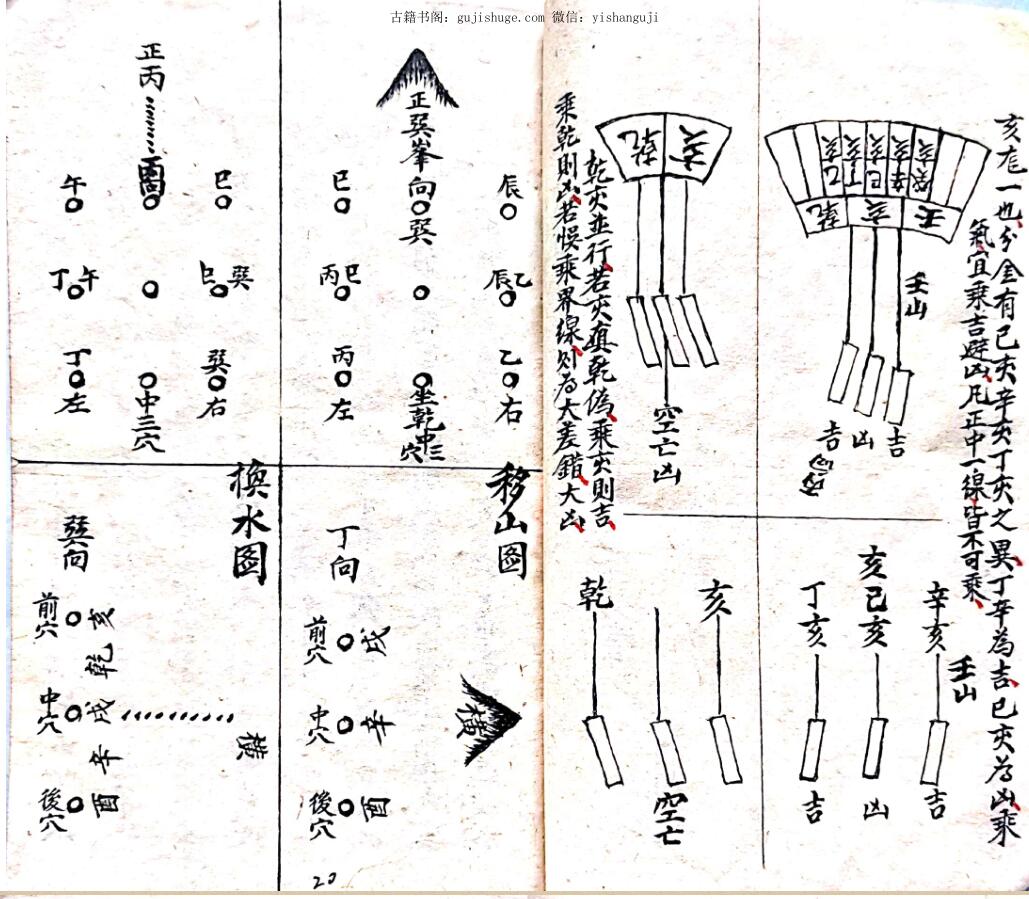 古籍书阁：gujishuge.com 微信：yishanguji
亥龙一也、分金有己亥辛亥丁亥之異、丁辛為吉、已亥為凶、乘
氣宜乘吉避凶、凡正中一線、皆不可乘、
乙亥
丁亥
己亥
辛亥
癸亥
乾
亥
壬
壬山
吉
凶
吉
丙向
辛亥
亥己亥
丁亥
壬山
吉
凶
吉
乾
亥
空亡凶
乾亥並行、若亥真乾偽、乘亥則吉、
乘乾則凶、若悞乘界線、則为大差錯、大凶、
亥
乾
空亡
正巽峯向
巽
辰
巳
辰乙
丙巳
乙
右
坐乾中三穴
丙
左
正丙
巳
午
巳巽
丁午
巽
右
中三穴
丁
左
移山圖
丁向
前穴
戌
中穴
辛
後穴
酉
横
換水圖
巽向
前穴
亥
乾
中穴
戌
辛
後穴
酉
横
20